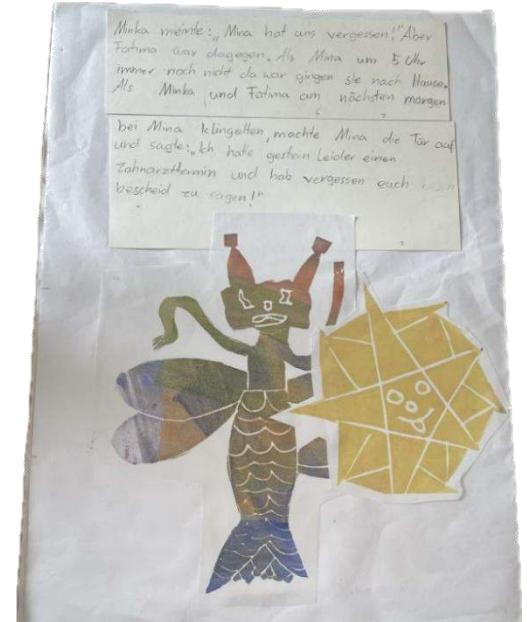 Minka meinte: „Mina hat uns vergessen!" Aber
Fatima war dagegen. Als Mina um 5 Uhr
immer noch nicht da war gingen sie nach Hause.
Als Minka und Fatima am nächsten morgen
bei Mina klingelten, machte Mina die Tür auf
und sagte: „Ich hatte gestern Leider einen
Zahnarzttermin und hab vergessen euch
bescheid zu sagen!"